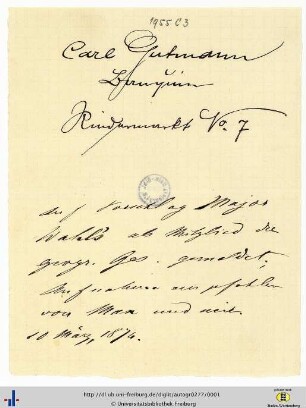 1955 C 3
Carl Gutmann
Banquier
Rindermarkt No. 7
auf Vorschlag Major
Wahl's als Mitglied der
geogr. Ges. gemeldet,
von Max und mir.
10 März, 1876.
http://dl.ub.uni-freiburg.de/diglit/autogr0277/0001
© Universitätsbibliothek Freiburg